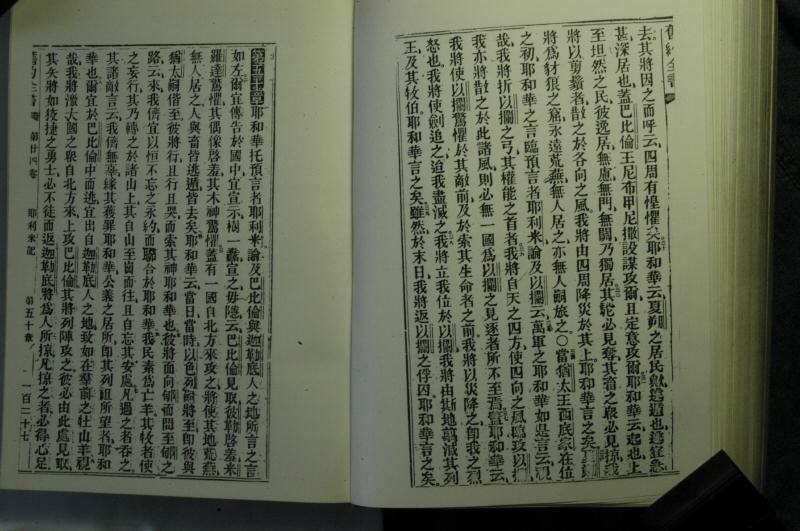 舊約全書
去其將因之而呼云四周有惶懼矣耶和華云夏瑣之居民歟逃遁也遠逸急
甚深居也蓋巴比倫王尼布甲尼撒設謀攻爾且定意攻爾耶和華云起也上
至坦然之民彼逸居無慮無門無關乃獨居其駝必見奪其畜之衆必見掠我
將以剪鬚者散之於各向之風我將由四周降災於其上耶和華言之矣
將爲豺狼之窟永遠荒蕪無人居之亦無人嗣旅之○當猶太王西底家在位
之初耶和華之言臨預言者耶利米論及以攔云萬軍之耶和華如是言云視
哉我將折以攔之弓其權能之首者我將自天之四方使四向之風臨攻以攔
我亦將散之於此諸風則必無一國爲以攔之見逐者所不至焉蓋耶和華云
我將使以攔驚懼於其敵前及於索其生命者之前我將以災降之卽我之烈
怒也我將使劍追之迫我盡滅之我將立我位於以攔我將由斯地翦滅其列
王及其牧伯耶和華言之矣雖然於末日我將返以攔之俘囚耶和華言之矣
第五十章耶和華托預言者耶利米論及巴比倫與迦勒底人之地所言之言
如左爾宜傳告於國中宜宣示樹一纛宣之毋隱云巴比倫見取彼勒啓羞米
羅達驚懼其偶像啓羞其木神驚懼蓋有一國自北方來攻之將使其地荒蕪
無人居之人與畜皆逃遁皆去矣耶和華云當日當時以色列嗣將至卽彼與
猶太嗣偕至彼將行且行且哭而索其神耶和華也彼將面向郇而問至郇之
路云來我儕宜以恒不忘之永約而聯合於耶和華我民素爲亡羊其牧者使
之妄行其乃轉之於諸山上其自山至崗而往且自忘其安處凡遇之者吞之
其諸敵言云我儕無辜緣其獲罪耶和華公義之居所卽其列祖所望者耶和
華也爾宜於巴比倫中而逃宜出自迦勒底人之地致如在羣前之牡山羊視
哉我將激大國之衆自北方來上攻巴比倫其將列陣攻之彼必由此處見取
其矢將如狡捷之勇士必不徒而返迦勒底將爲人所掠凡掠之者必得心足
舊約全書 第廿四卷 耶利米記 第五十章 一百二十七